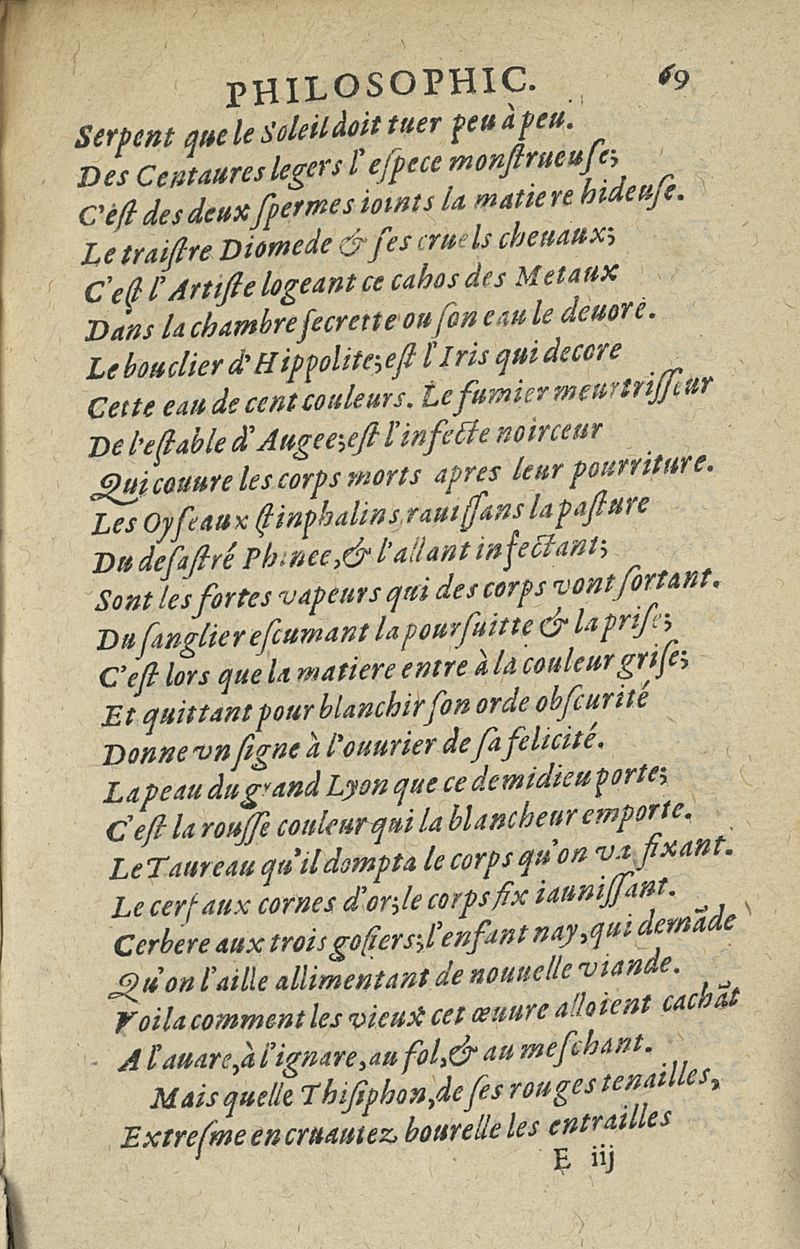 PHILOSOPHIC. 69
Serpent que le Soleil doit tuer peu à peu.
Des Centaures legers l'eſpece monſtrueuſe;
C'eſt des deux ſpermes ioints la matiere hideuſe.
Le traiſtre Diomede & ſes cruels cheuaux;
C'eſt l'Artiſte logeant ce cahos des Metaux
Dans la chambre ſecrette ou ſon eau le deuore.
Le bouclier d'Hippolite;eſt l'Iris qui decore
Cette eau de cent couleurs. Le fumier meurtriſſeur
De l'eſtable d'Augee;eſt l'infecte noirceur
Qui couure les corps morts apres leur pourriture.
Les Oyſeaux ſtinphalins rauiſſans la paſture
Du deſaſtré Phinee,& l'allant infectant;
Sont les fortes vapeurs qui des corps vont ſortant.
Du ſanglier eſcumant la pourſuitte & la priſe;
C'eſt lors que la matiere entre à la couleur griſe;
Et quittant pour blanchir ſon orde obſcurité
Donne vn ſigne à l'ouurier de ſa felicité.
La peau du grand Lyon que ce demidieu porte;
C'eſt la rouſſe couleur qui la blancheur emporte.
Le Taureau qu'il dompta le corps qu'on va fixant.
Le cerf aux cornes d'or;le corps fix iauniſſant.
Cerbere aux trois goſiers;l'enfant nay,qui demāde
Qu'on l'aille allimentant de nouuelle viande.
Voila comment les vieux cet œuure alloient cachāt
A l'auare,à l'ignare,au fol,& au meſchant.
Mais quelle Thiſiphon,de ſes rouges tenailles,
Extreſme en cruautez bourelle les entrailles
E iij